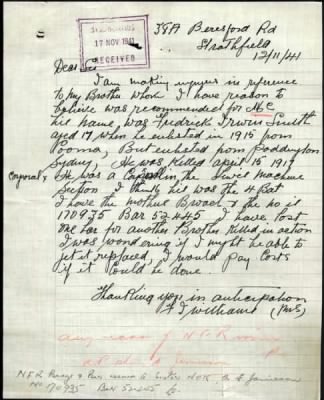 38A Beresford Rd
Strathfield
12/11/41
17 NOV 1941
RECEIVED
Dear Sir
I am making inquires in reference
to my Brother whom I have reason to
believe was recommended for
his name was Fredrick Irwin Smith
aged 17 when he enlisted in 1915 from
Cooma, But enlisted from Paddington
Sydney, He was killed April 15 1917
Corporal x He was a in the Machine
Section I think his was the 4 Bat
I have the mothers Broach & the no is
170935 Bar 52445 I have lost
one Bar for another Brother killed in action
I was wondering if I might be able to
get it replaced, I would pay costs
if it could be done.
Thanking you in anticipation
F I Williams (Mrs)
any
N.F.R.
No 170935 Bar 52445